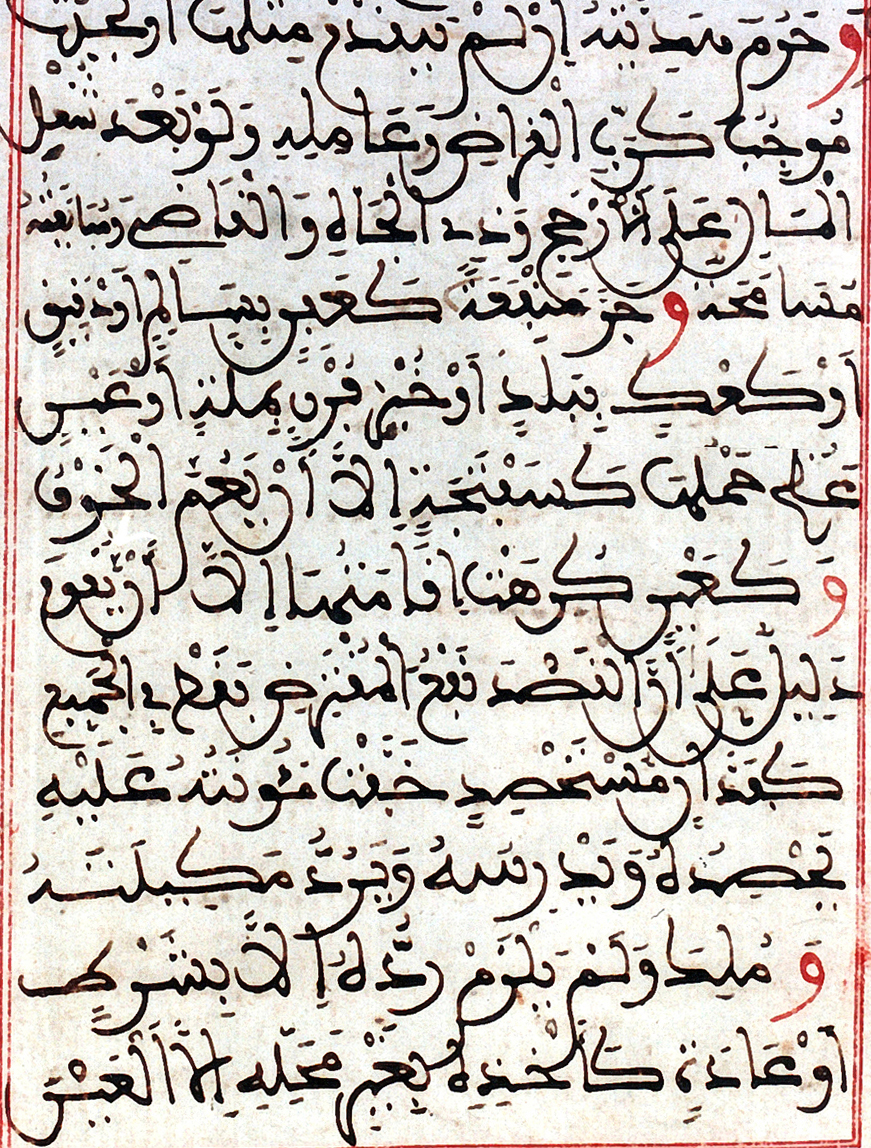 وَحَرُمَ هَدِيَّتُهُ إِنْ لَمْ يَتَقَدَّمْ مِثْلُهَا أَوْ يَحْدُثْ
مُوجِبٌ كَرَبِّ الْقِرَاضِ وَعَامِلِهِ وَلَوْ بَعْدَ شَغْلِ
الْمَالِ عَلَى الْأَرْجَحِ وَذِي الْجَاهِ وَالْقَاضِي وَمُبَايَعَتُهُ
مُسَامَحَةً وَجَرُّ مَنْفَعَةٍ كَعَفِنٍ بِسَالِمٍ أَوْ دَقِيقٍ
أَوْ كَعْكٍ بِبَلَدٍ أَوْ خُبْزِ فُرْنٍ بِمَلَّةٍ أَوْ عَيْنٍ
عَظُمَ حَمْلُهَا كَسَفْتَجَةٍ إِلَّا أَنْ يَعُمَّ الْخَوْفُ
وَكَعَيْنٍ كُرِهَتْ إِقَامَتُهَا إِلَّا أَنْ يَقُومَ
دَلِيلٌ عَلَى أَنَّ الْقَصْدَ نَفْعُ الْمُقْتَرِضِ فَقَطْ فِي الْجَمِيعِ
كَفَدَّانٍ مُسْتَحْصِدٍ خَفَّتْ مَؤُونَتُهُ عَلَيْهِ
يَحْصِدُهُ وَيَدْرِسُهُ وَيَرُدُّ مَكِيلَتَهُ
وَمُلِكَ وَلَمْ يَلْزَمْ رَدُّهُ إِلَّا بِشَرْطٍ
أَوْ عَادَةٍ كَأَخْذِهِ بِغَيْرِ مَحَلِّهِ إِلَّا الْعَيْنَ